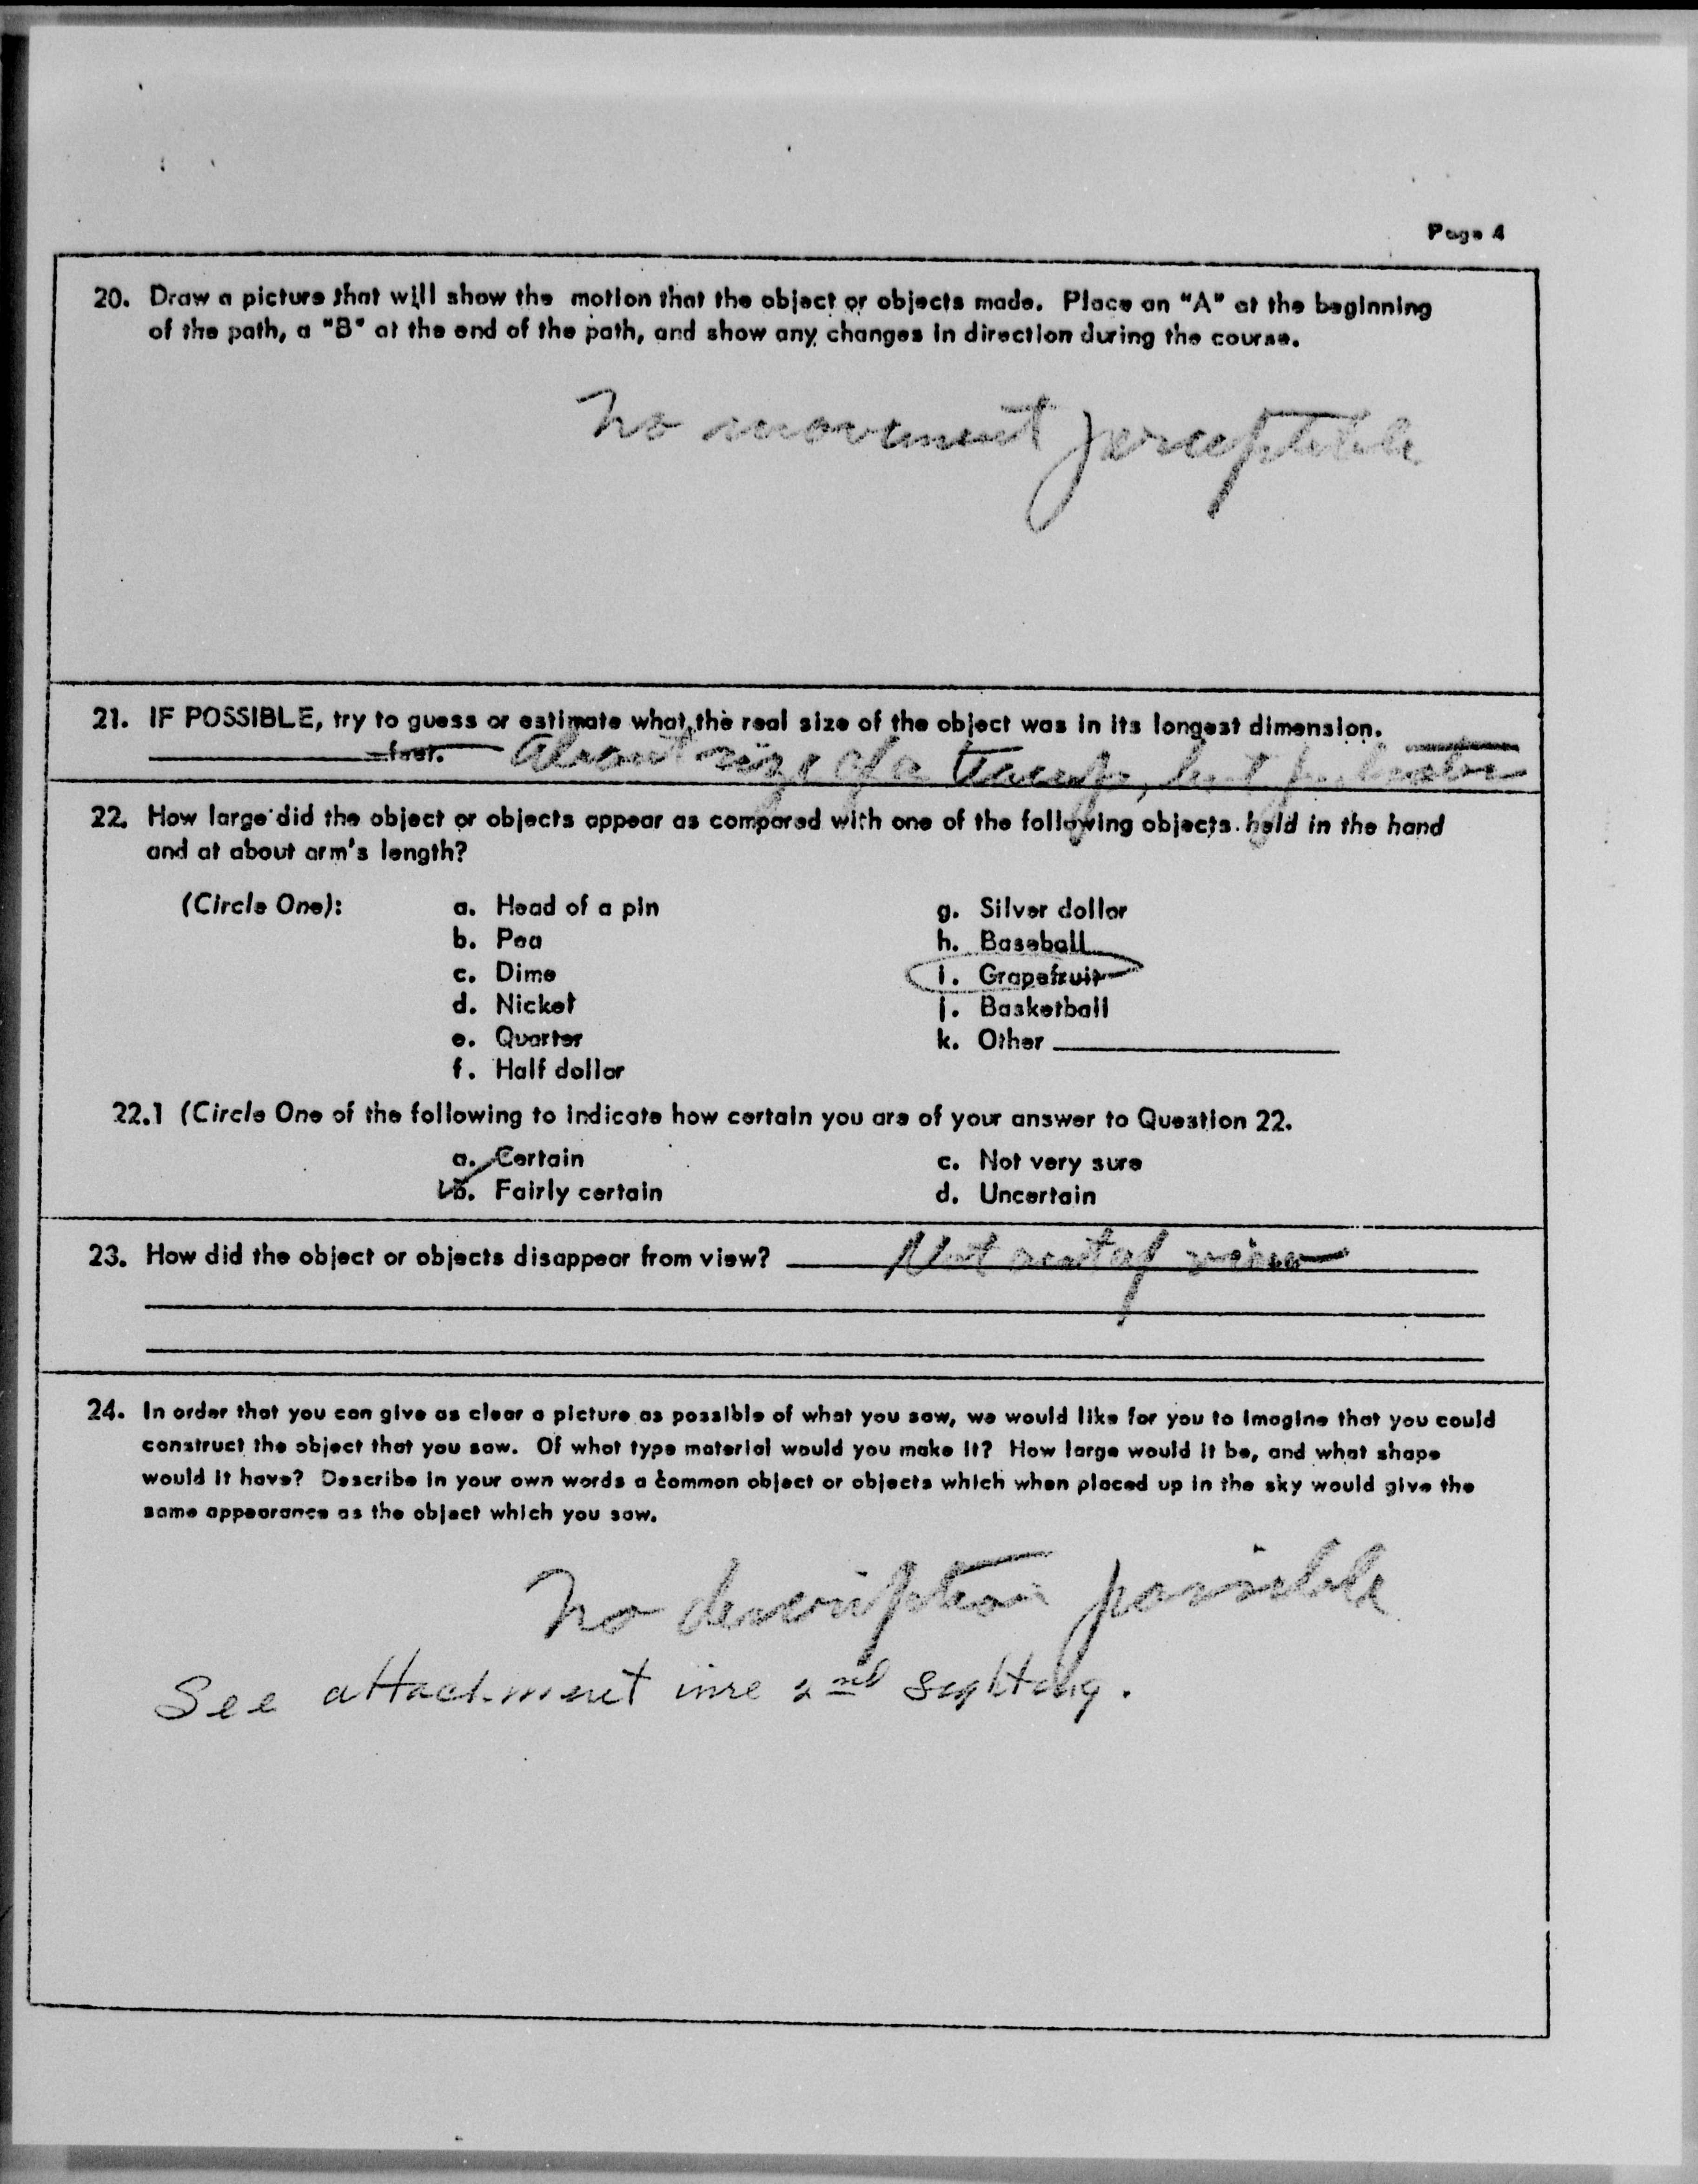 Page 4
20. Draw a picture that will show the motion that the object or objects made. Place an "A" at the beginning
of the path, a "B" at the end of the path, and show any changes in direction during the course.
No movement perceptible
21. IF POSSIBLE, try to guess or estimate what the real size of the object was in its longest dimension.
feet. About size of a but
22. How large did the object or objects appear as compared with one of the following objects held in the hand
and at about arm's length?
(Circle One): a. Head of a pin g. Silver dollar
b. Pea h. Baseball
c. Dime i. Grapefruit
d. Nickel j. Basketball
e. Quarter k. Other
f. Half dollar
22.1 (Circle One of the following to indicate how certain you are of your answer to Question 22.
a. Certain c. Not very sure
b. Fairly certain d. Uncertain
23. How did the object or objects disappear from view? Not out of view
24. In order that you can give as clear a picture as possible of what you saw, we would like for you to imagine that you could
construct the object that you saw. Of what type material would you make it? How large would it be, and what shape
would it have? Describe in your own words a common object or objects which when placed up in the sky would give the
same appearance as the object which you saw.
No description possible
See attachment inre 2nd sighting.